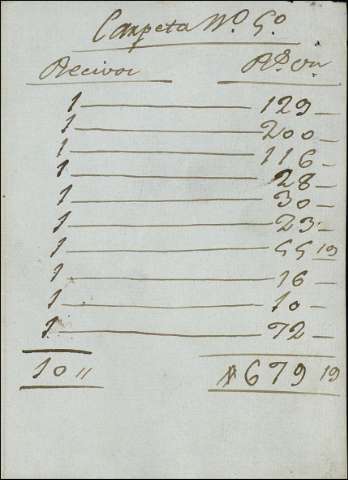 Carpeta Nº 5º
Recivos Rs. vn
1 129
1 200
1 116
1 28
1 30
1 23
1 55 19
1 16
1 10
1 72
10 " 679 19